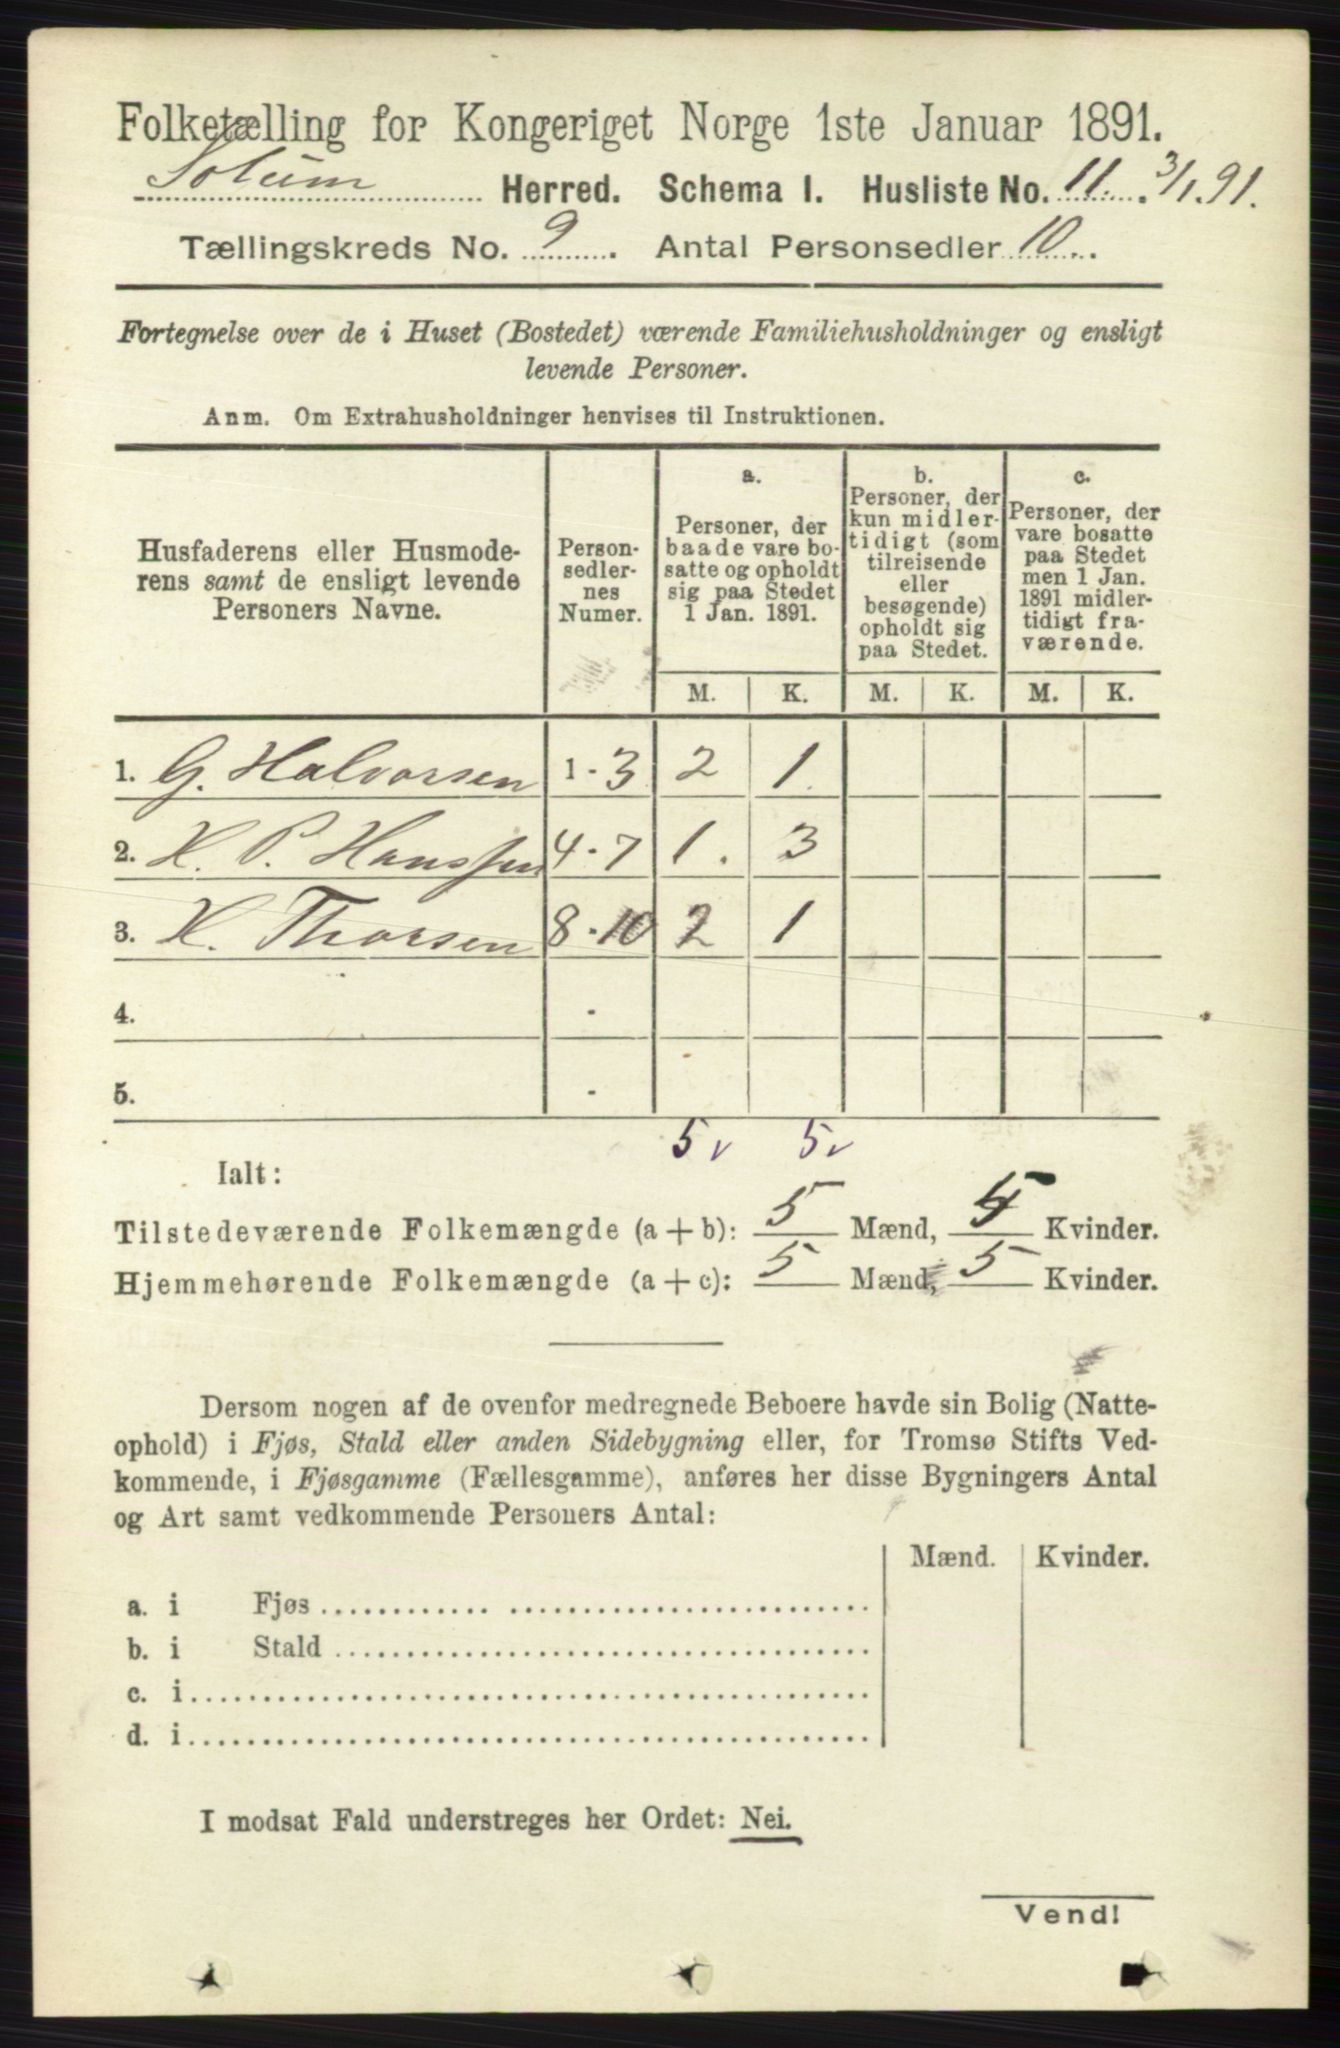 Folketælling for Kongeriget Norge 1ste Januar 1891.
Solum Herred. Schema I. Husliste No. 11. 3/1.91.
Tællingskreds No. 9. Antal Personsedler 10.
Fortegnelse over de i Huset (Bostedet) værende Familiehusholdninger og ensligt
levende Personer.
Anm. Om Extrahusholdninger henvises til Instruktionen.
Husfaderens eller Husmode-
rens samt de ensligt levende
Personers Navne.
Person-
sedler-
nes
Numer.
a.
Personer, der
baade vare bo-
satte og opholdt
sig paa Stedet
1 Jan. 1891.
b.
Personer, der
kun midler-
tidigt (som
tilreisende
eller
besøgende)
opholdt sig
paa Stedet.
c.
Personer, der
vare bosatte
paa Stedet
men 1 Jan.
1891 midler-
tidigt fra-
værende.
M. K. M. K. M. K.
1. G. Halvorsen 1 - 3 2 1
2. H. P. Hanssen 4 - 7 1. 3
3. H. Thorsen 8 - 10 2 1
4. -
5. -
5 v 5 v
Ialt:
Tilstedeværende Folkemængde (a + b): 5 Mænd, 5 Kvinder.
Hjemmehørende Folkemængde (a + c): 5 Mænd, 5 Kvinder.
Dersom nogen af de ovenfor medregnede Beboere havde sin Bolig (Natte-
ophold) i Fjøs, Stald eller anden Sidebygning eller, for Tromsø Stifts Ved-
kommende, i Fjøsgamme (Fællesgamme), anføres her disse Bygningers Antal
og Art samt vedkommende Personers Antal:
Mænd. Kvinder.
a. i Fjøs
b. i Stald
c. i
d. i
I modsat Fald understreges her Ordet: Nei.
Vend!